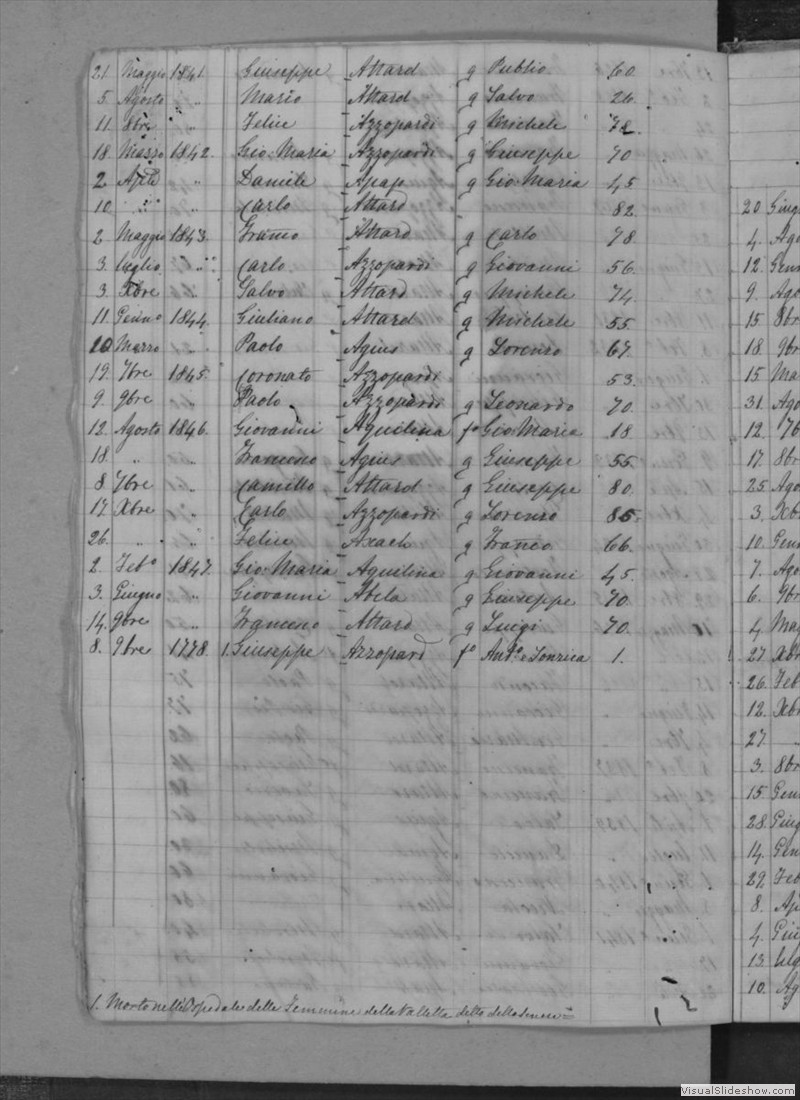 21. Maggio 1841. Giuseppe Attard q Publio 60.
5. Agosto " Mario Attard q Salvo 26.
11. 8bre " Felice Azzopardi q Michele 72.
18. Marzo 1842. Gio: Maria Azzopardi q Giuseppe 70
2 Aple " Daniele Apap q Gio Maria 45
10. " " Carlo Attard 82.
2 Maggio 1843. Franco Attard q Carlo 78
3. Luglio " Carlo Azzopardi q Giovanni 56.
3. Xbre " Salvo Attard q Michele 74.
11. Genno 1844. Giuliano Attard q Michele 55.
10 Marzo " Paolo Agius q Lorenzo 67.
19. 7bre 1845. Coronato Azzopardi 53.
9. 9bre " Paolo Azzopardi q Leonardo 70.
12. Agosto 1846. Giovanni Aquilina fo Gio Maria 18.
18. " " Francesco Agius q Giuseppe 55.
8. 7bre " Camillo Attard q Giuseppe 80.
17. Xbre " Carlo Azzopardi q Lorenzo 85.
26. " " Felice Axach q Franco 66.
2. Febo 1847. Gio: Maria Aquilina q Giovanni 45.
3. Giugno " Giovanni Abela q Giuseppe 70.
14. 9bre " Francesco Attard q Luigi 70.
8. 9bre 1778. 1. Giuseppe Azzopard fo Anto e 1.
1. Morto nell Ospedale delle Femmine della Valletta detto
20. Giug
4. Ago
12. Gen
9. Ago
15. 8br
18. 9br
15. Ma
31. Ago
12. 7b
17. 8br
25. Ago
3. Xbr
10. Gen
7. Ago
6. 9br
4. Mag
27. Xbr
26. Feb
12. Xbr
27. "
3. 8br
15. Gen
28. Giug
14. Gen
29. Feb
8. Ap
4. Giu
13. Lug
10. Ag
VisualSlideshow.com